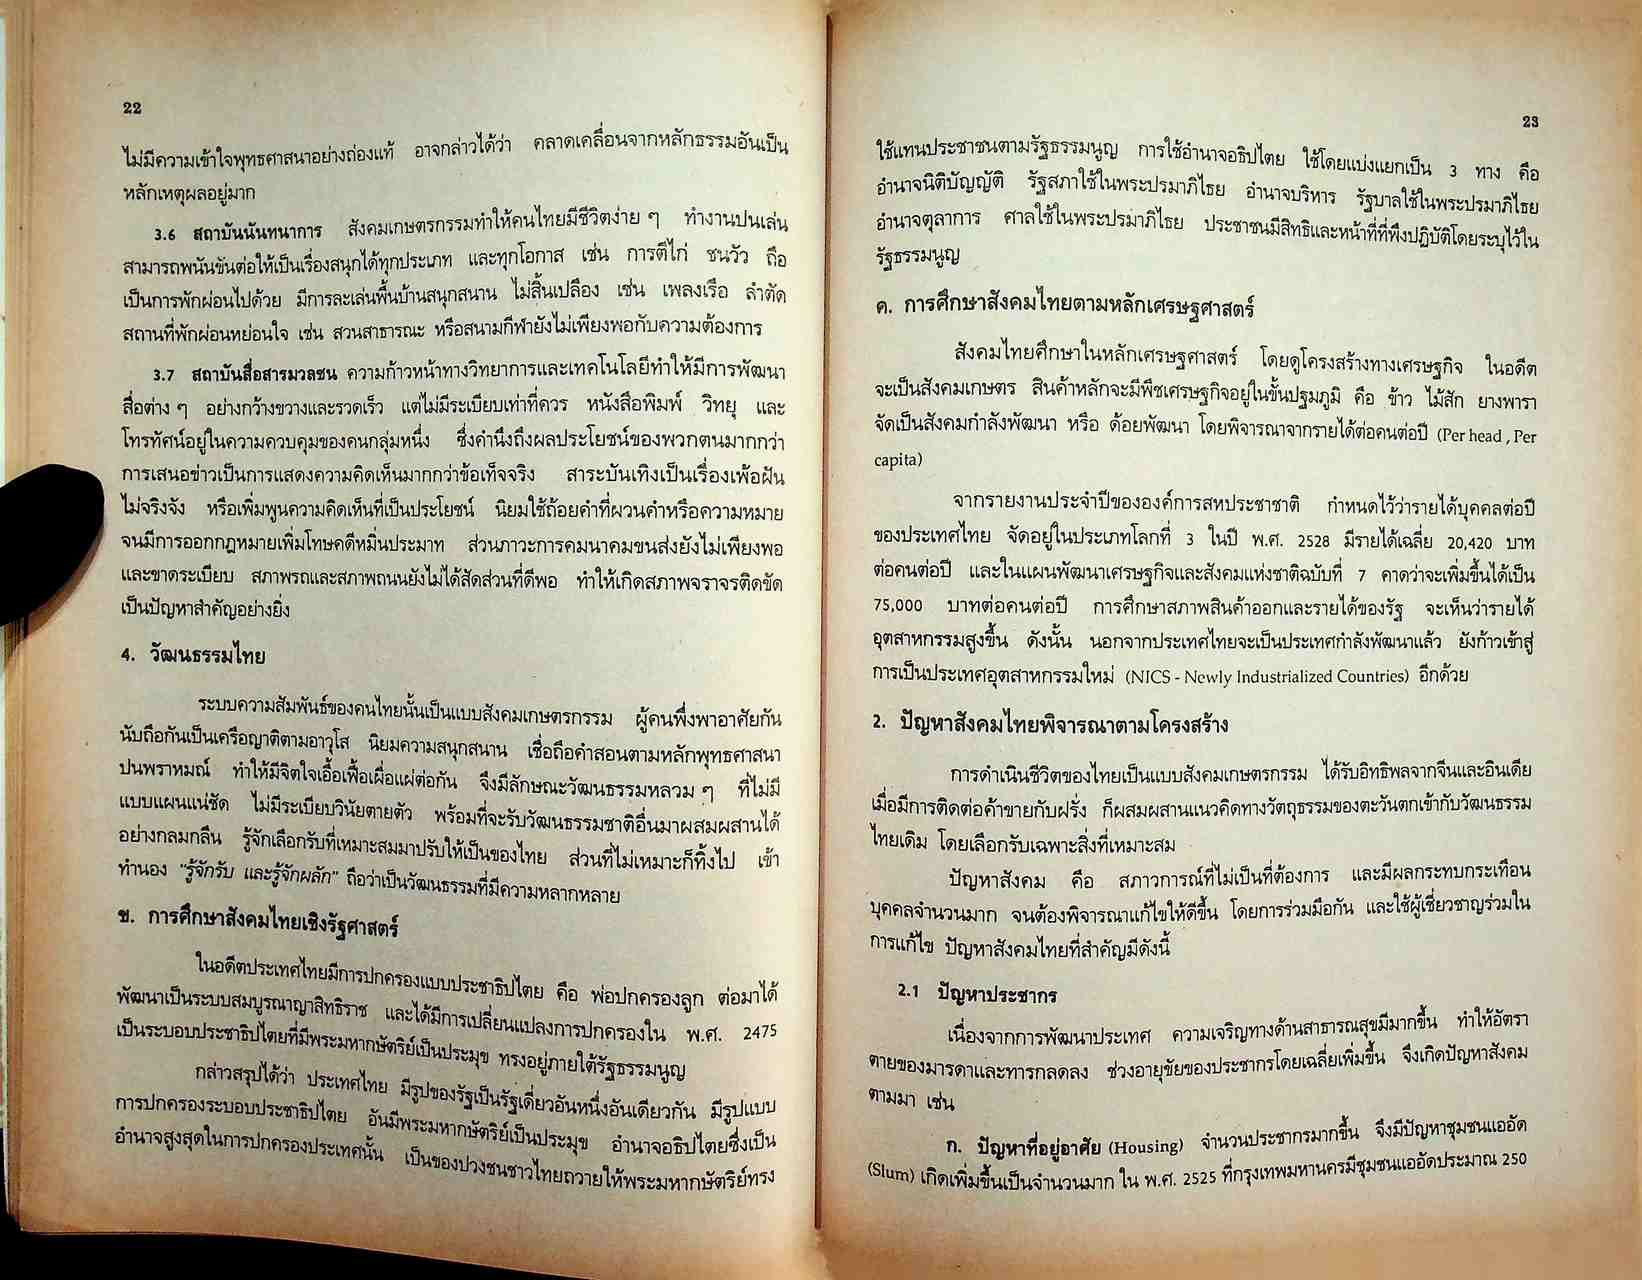 22
ไม่มีความเข้าใจพุทธศาสนาอย่างถ่องแท้ อาจกล่าวได้ว่า คลาดเคลื่อนจากหลักธรรมอันเป็น
หลักเหตุผลอยู่มาก
3.6 สถาบันนันทนาการ สังคมเกษตรกรรมทำให้คนไทยมีชีวิตง่าย ๆ ทำงานปนเล่น
สามารถพนันขันต่อให้เป็นเรื่องสนุกได้ทุกประเภท และทุกโอกาส เช่น การตีไก่ ชนวัว ถือ
เป็นการพักผ่อนไปด้วย มีการละเล่นพื้นบ้านสนุกสนาน ไม่สิ้นเปลือง เช่น เพลงเรือ ลำตัด
สถานที่พักผ่อนหย่อนใจ เช่น สวนสาธารณะ หรือสนามกีฬายังไม่เพียงพอกับความต้องการ
3.7 สถาบันสื่อสารมวลชน ความก้าวหน้าทางวิทยาการและเทคโนโลยีทำให้มีการพัฒนา
สื่อต่าง ๆ อย่างกว้างขวางและรวดเร็ว แต่ไม่มีระเบียบเท่าที่ควร หนังสือพิมพ์ วิทยุ และ
โทรทัศน์อยู่ในความควบคุมของคนกลุ่มหนึ่ง ซึ่งคำนึงถึงผลประโยชน์ของพวกตนมากกว่า
การเสนอข่าวเป็นการแสดงความคิดเห็นมากกว่าข้อเท็จจริง สาระบันเทิงเป็นเรื่องเพ้อฝัน
ไม่จริงจัง หรือเพิ่มพูนความคิดเห็นที่เป็นประโยชน์ นิยมใช้ถ้อยคำที่ผวนคำหรือความหมาย
จนมีการออกกฎหมายเพิ่มโทษคดีหมิ่นประมาท ส่วนภาวะการคมนาคมขนส่งยังไม่เพียงพอ
และขาดระเบียบ สภาพรถและสภาพถนนยังไม่ได้สัดส่วนที่ดีพอ ทำให้เกิดสภาพจราจรติดขัด
เป็นปัญหาสำคัญอย่างยิ่ง
4. วัฒนธรรมไทย
ระบบความสัมพันธ์ของคนไทยนั้นเป็นแบบสังคมเกษตรกรรม ผู้คนพึ่งพาอาศัยกัน
นับถือกันเป็นเครือญาติตามอาวุโส นิยมความสนุกสนาน เชื่อถือคำสอนตามหลักพุทธศาสนา
ปนพราหมณ์ ทำให้มีจิตใจเอื้อเฟื้อเผื่อแผ่ต่อกัน จึงมีลักษณะวัฒนธรรมหลวม ๆ ที่ไม่มี
แบบแผนแน่ชัด ไม่มีระเบียบวินัยตายตัว พร้อมที่จะรับวัฒนธรรมชาติอื่นมาผสมผสานได้
อย่างกลมกลืน รู้จักเลือกรับที่เหมาะสมมาปรับให้เป็นของไทย ส่วนที่ไม่เหมาะก็ทิ้งไป เข้า
ทำนอง "รู้จักรับ และรู้จักผลัก" ถือว่าเป็นวัฒนธรรมที่มีความหลากหลาย
ข. การศึกษาสังคมไทยเชิงรัฐศาสตร์
ในอดีตประเทศไทยมีการปกครองแบบประชาธิปไตย คือ พ่อปกครองลูก ต่อมาได้
พัฒนาเป็นระบบสมบูรณาญาสิทธิราช และได้มีการเปลี่ยนแปลงการปกครองใน พ.ศ. 2475
เป็นระบอบประชาธิปไตยที่มีพระมหากษัตริย์เป็นประมุข ทรงอยู่ภายใต้รัฐธรรมนูญ
กล่าวสรุปได้ว่า ประเทศไทย มีรูปของรัฐเป็นรัฐเดี่ยวอันหนึ่งอันเดียวกัน มีรูปแบบ
การปกครองระบอบประชาธิปไตย อันมีพระมหากษัตริย์เป็นประมุข อำนาจอธิปไตยซึ่งเป็น
อำนาจสูงสุดในการปกครองประเทศนั้น เป็นของปวงชนชาวไทยถวายให้พระมหากษัตริย์ทรง
23
ใช้แทนประชาชนตามรัฐธรรมนูญ การใช้อำนาจอธิปไตย ใช้โดยแบ่งแยกเป็น 3 ทาง คือ
อำนาจนิติบัญญัติ รัฐสภาใช้ในพระปรมาภิไธย อำนาจบริหาร รัฐบาลใช้ในพระปรมาภิไธย
อำนาจตุลาการ ศาลใช้ในพระปรมาภิไธย ประชาชนมีสิทธิและหน้าที่ที่พึงปฏิบัติโดยระบุไว้ใน
รัฐธรรมนูญ
ค. การศึกษาสังคมไทยตามหลักเศรษฐศาสตร์
สังคมไทยศึกษาในหลักเศรษฐศาสตร์ โดยดูโครงสร้างทางเศรษฐกิจ ในอดีต
จะเป็นสังคมเกษตร สินค้าหลักจะมีพืชเศรษฐกิจอยู่ในขั้นปฐมภูมิ คือ ข้าว ไม้สัก ยางพารา
จัดเป็นสังคมกำลังพัฒนา หรือ ด้อยพัฒนา โดยพิจารณาจากรายได้ต่อคนต่อปี (Per head , Per
capita)
จากรายงานประจำปีขององค์การสหประชาชาติ กำหนดไว้ว่ารายได้บุคคลต่อปี
ของประเทศไทย จัดอยู่ในประเภทโลกที่ 3 ในปี พ.ศ. 2528 มีรายได้เฉลี่ย 20,420 บาท
ต่อคนต่อปี และในแผนพัฒนาเศรษฐกิจและสังคมแห่งชาติฉบับที่ 7 คาดว่าจะเพิ่มขึ้นได้เป็น
75,000 บาทต่อคนต่อปี การศึกษาสภาพสินค้าออกและรายได้ของรัฐ จะเห็นว่ารายได้
อุตสาหกรรมสูงขึ้น ดังนั้น นอกจากประเทศไทยจะเป็นประเทศกำลังพัฒนาแล้ว ยังก้าวเข้าสู่
การเป็นประเทศอุตสาหกรรมใหม่ (NICS - Newly Industrialized Countries) อีกด้วย
2. ปัญหาสังคมไทยพิจารณาตามโครงสร้าง
การดำเนินชีวิตของไทยเป็นแบบสังคมเกษตรกรรม ได้รับอิทธิพลจากจีนและอินเดีย
เมื่อมีการติดต่อค้าขายกับฝรั่ง ก็ผสมผสานแนวคิดทางวัตถุธรรมของตะวันตกเข้ากับวัฒนธรรม
ไทยเดิม โดยเลือกรับเฉพาะสิ่งที่เหมาะสม
ปัญหาสังคม คือ สภาวการณ์ที่ไม่เป็นที่ต้องการ และมีผลกระทบกระเทือน
บุคคลจำนวนมาก จนต้องพิจารณาแก้ไขให้ดีขึ้น โดยการร่วมมือกัน และใช้ผู้เชี่ยวชาญร่วมใน
การแก้ไข ปัญหาสังคมไทยที่สำคัญมีดังนี้
2.1 ปัญหาประชากร
เนื่องจากการพัฒนาประเทศ ความเจริญทางด้านสาธารณสุขมีมากขึ้น ทำให้อัตรา
ตายของมารดาและทารกลดลง ช่วงอายุขัยของประชากรโดยเฉลี่ยเพิ่มขึ้น จึงเกิดปัญหาสังคม
ตามมา เช่น
ก. ปัญหาที่อยู่อาศัย (Housing) จำนวนประชากรมากขึ้น จึงมีปัญหาชุมชนแออัด
(Slum) เกิดเพิ่มขึ้นเป็นจำนวนมาก ใน พ.ศ. 2525 ที่กรุงเทพมหานครมีชุมชนแออัดประมาณ 250